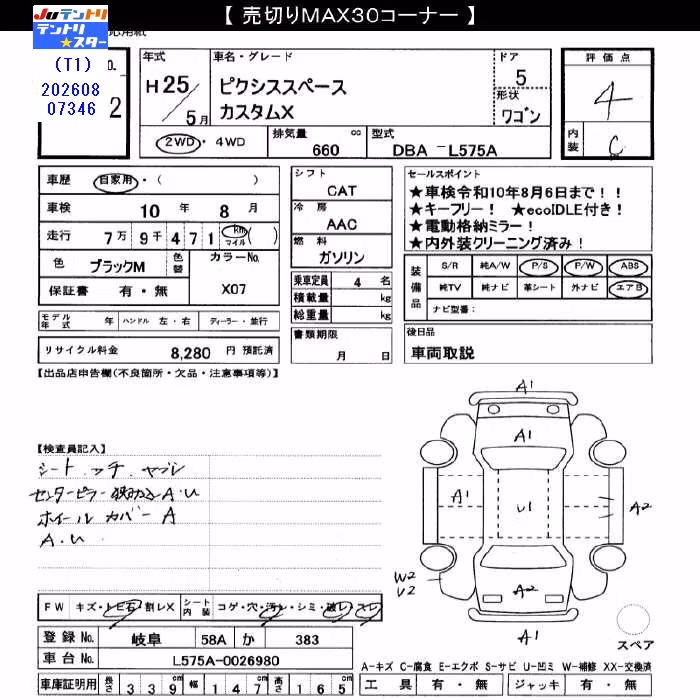 【 売切りMAX30コーナー 】
Juテントリ
テントリ
★スター
応用紙
(T1)
202608
07346
o.
2
年式
H 25 / 5月
車名・グレード
ピクシススペース
カスタムX
ドア
5
形状
ワゴン
2WD ・ 4WD
排気量 cc
660
型式
DBA -L575A
評価点
4
内装
C
車歴 自家用・( )
車検 10 年 8 月
走行 7万 9千 4 7 1 km マイル ( )
色 ブラックM 色替 カラーNo.
保証書 有・無 X07
モデル年式 年 ハンドル 左・右 ディーラー・並行
リサイクル料金 8,280 円 預託済
シフト
CAT
冷房
AAC
燃料
ガソリン
乗車定員 4 名
積載量 kg
総重量 kg
書類期限
月 日
セールスポイント
★車検令和10年8月6日まで!!
★キーフリー! ★ecoIDLE付き!
★電動格納ミラー!
★内外装クリーニング済み!
装備品
S/R 純A/W P/S P/W ABS
純TV 純ナビ 革シート 外ナビ エアB
ナビ型番:
後日品
車両取説
【出品店申告欄(不良箇所・欠品・注意事項等)】
【検査員記入】
シート コケ ヤブレ
センターピラー 狭み込 A・U
ホイール カバー A
A・U
A1
A1
A1
U1
A2
W2
U2
A2
A1
スペア
FW キズ・トビ石・割レX シート内装 コゲ・穴・汚レ・シミ・破レ・スレ
登録No. 岐阜 58A か 383
車台No. L575A-0026980
車庫証明用 長さ 3 3 9 cm 幅 1 4 7 cm 高さ 1 6 5 cm
A-キズ C-腐食 E-エクボ S-サビ U-凹ミ W-補修 XX-交換済
工具 有・無 ジャッキ 有・無